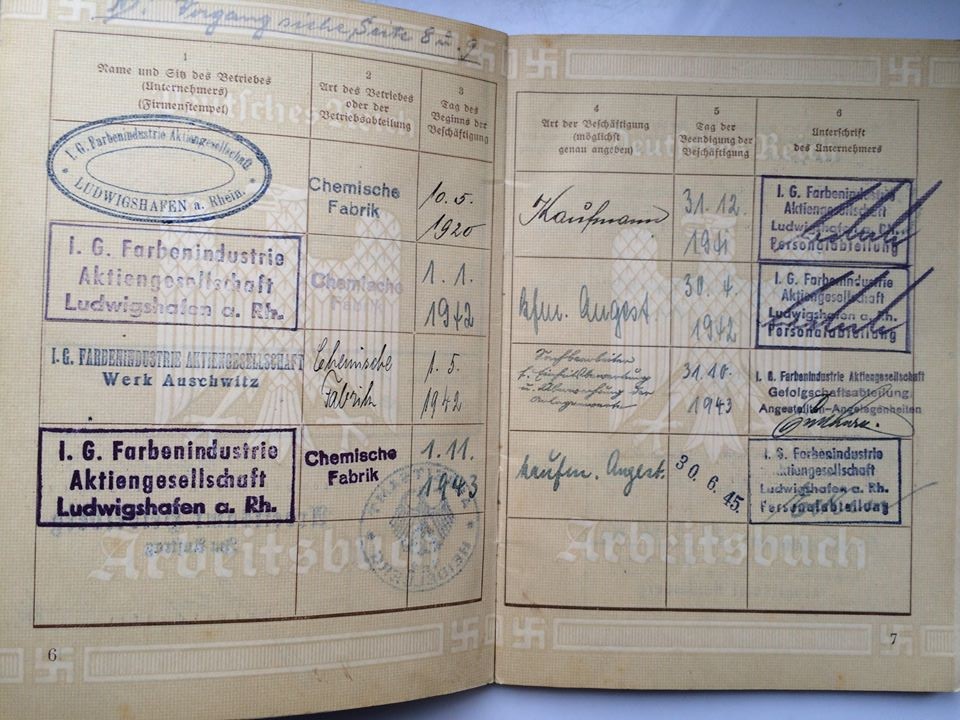 Vorgang siehe Seite 8 u. 9
1
Name und Sitz des Betriebes
(Unternehmers)
(Firmenstempel)
2
Art des Betriebes
oder der
Betriebsabteilung
3
Tag des
Beginns der
Beschäftigung
I. G. Farbenindustrie Aktiengesellschaft
* LUDWIGSHAFEN a. Rhein. *
Chemische
Fabrik
10. 5.
1920
I. G. Farbenindustrie
Aktiengesellschaft
Ludwigshafen a. Rh.
Chemische
Fabrik
1. 1.
1942
I. G. FARBENINDUSTRIE AKTIENGESELLSCHAFT
Werk Auschwitz
Chemische
Fabrik
1. 5.
1942
I. G. Farbenindustrie
Aktiengesellschaft
Ludwigshafen a. Rh.
Chemische
Fabrik
1. 11.
1943
HEIDELBERG
Arbeitsbuch
6
4
Art der Beschäftigung
(möglichst
genau angeben)
5
Tag der
Beendigung der
Beschäftigung
6
Unterschrift
des Unternehmers
Deutsches Reich
Kaufmann
31. 12.
1941
I. G. Farbenindustrie
Aktiengesellschaft
Ludwigshafen a. Rh.
Personalabteilung
kfm. Angest
30. 4.
1942
I. G. Farbenindustrie
Aktiengesellschaft
Ludwigshafen a. Rh.
Personalabteilung
31. 10.
1943
I. G. Farbenindustrie Aktiengesellschaft
Gefolgschaftsabteilung
Angestellten-Angelegenheiten
kaufm. Angest.
30. 6. 45.
I. G. Farbenindustrie
Aktiengesellschaft
Ludwigshafen a. Rh.
Personalabteilung
Arbeitsbuch
7